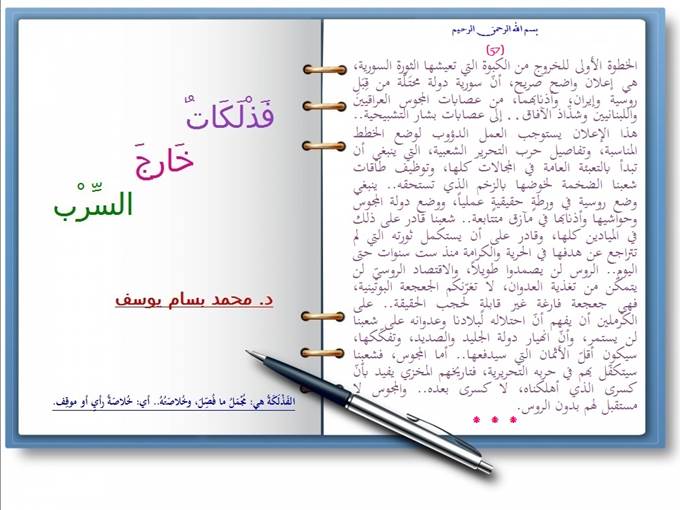 بسم الله الرحمن الرحيم
(57)
الخطوة الأولى للخروج من الكبوة التي تعيشها الثورة السورية،
هي إعلان واضح صريح، أنّ سورية دولة محتلّة من قِبَلِ
روسية وإيران، وأذنابهما، من عصابات المجوس العراقيين
واللبنانيين وشذّاذ الآفاق.. إلى عصابات بشار التشبيحية..
هذا الإعلان يستوجب العمل الدؤوب لوضع الخطط
المناسبة، وتفاصيل حرب التحرير الشعبية، التي ينبغي أن
تبدأ بالتعبئة العامة في المجالات كلها، وتوظيف طاقات
شعبنا الضخمة لخوضها بالزخم الذي تستحقه.. ينبغي
وضع روسية في ورطةٍ حقيقيةٍ عملياً، ووضع دولة المجوس
وحواشيها وأذنابها في مآزق متتابعة.. شعبنا قادر على ذلك
في الميادين كلها، وقادر على أن يستكمل ثورته التي لم
تتراجع عن هدفها في الحرية والكرامة منذ ست سنوات حتى
اليوم.. الروس لن يصمدوا طويلاً، والاقتصاد الروسيّ لن
يتمكّن من تغذية العدوان، لا تغرّنكم الجعجعة البوتينية،
فهي جعجعة فارغة غير قابلةٍ لحجب الحقيقة.. على
الكرملين أن يفهم أنّ احتلاله لبلادنا وعدوانه على شعبنا
لن يستمر، وأنّ انهيار دولة الجليد والصديد، وتفككها،
سيكون أقلّ الأثمان التي سيدفعها.. أما المجوس، فشعبنا
سيتكفّل بهم في حربه التحريرية، فتاريخهم المخزي يفيد بأنّ
كسرى الذي أهلكناه، لا كسرى بعده.. والمجوس لا
مستقبل لهم بدون الروس.
* * *
فَذْلَكَاتٌ
خَارِجَ
السِّرْب
د. محمد بسام يوسف
الفَذْلَكَةُ هي: مُجْمَلُ ما فُصِّلَ، وخُلاصَتُهُ.. أي: خُلاصَةُ رأيٍ أو موقِف.